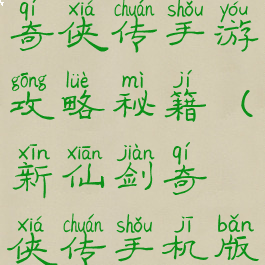 qí xiá chuán shǒu yóu
奇侠传手游
gōng lüè mì jí
攻略秘籍(
xīn xiān jiàn qí
新仙剑奇
xiá chuán shǒu jī bǎn
侠传手机版